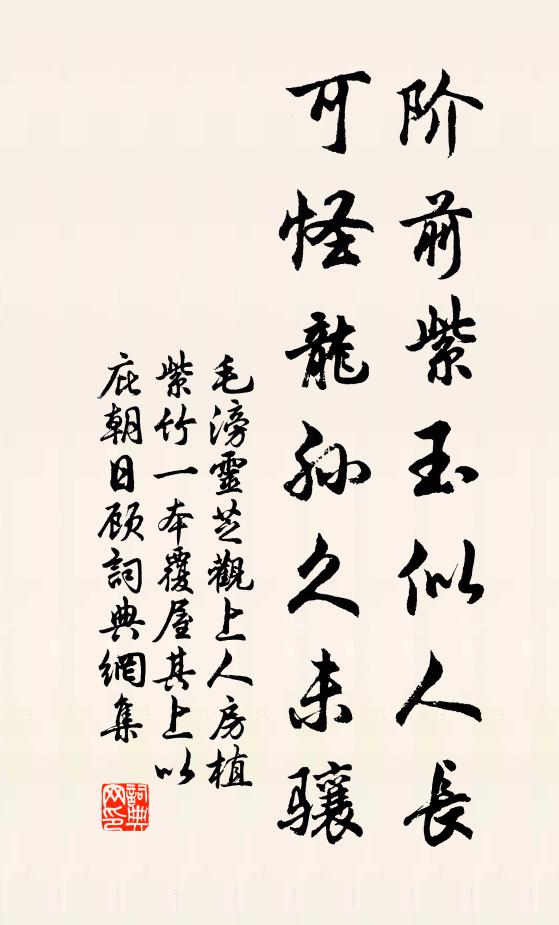 阶前紫玉似人長
可怪龍孙久未骧
毛滂靈芝觀上人房植
紫竹一本覆屋其上以
庇朝日顾詞典網集
詞典网印